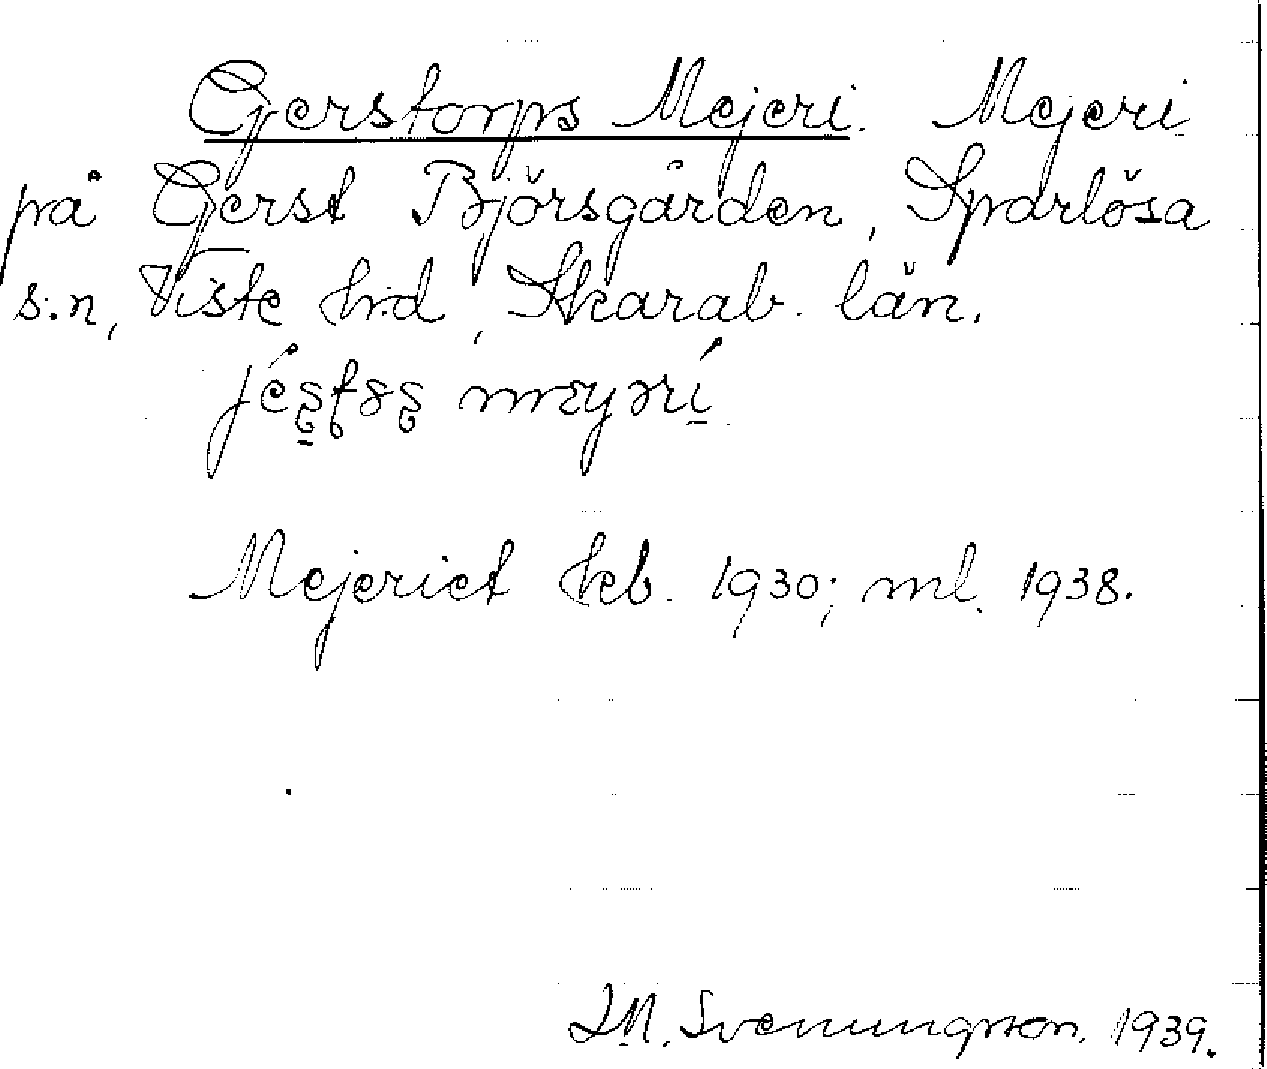 Gerstorps Mejeri. Mejeri
på Gerst Björsgården, Sparlösa
s:n, Viste hrd, Skarab. län.
Mejeriet heb. 1930; ml. 1938.
Svenungsson. 1939.